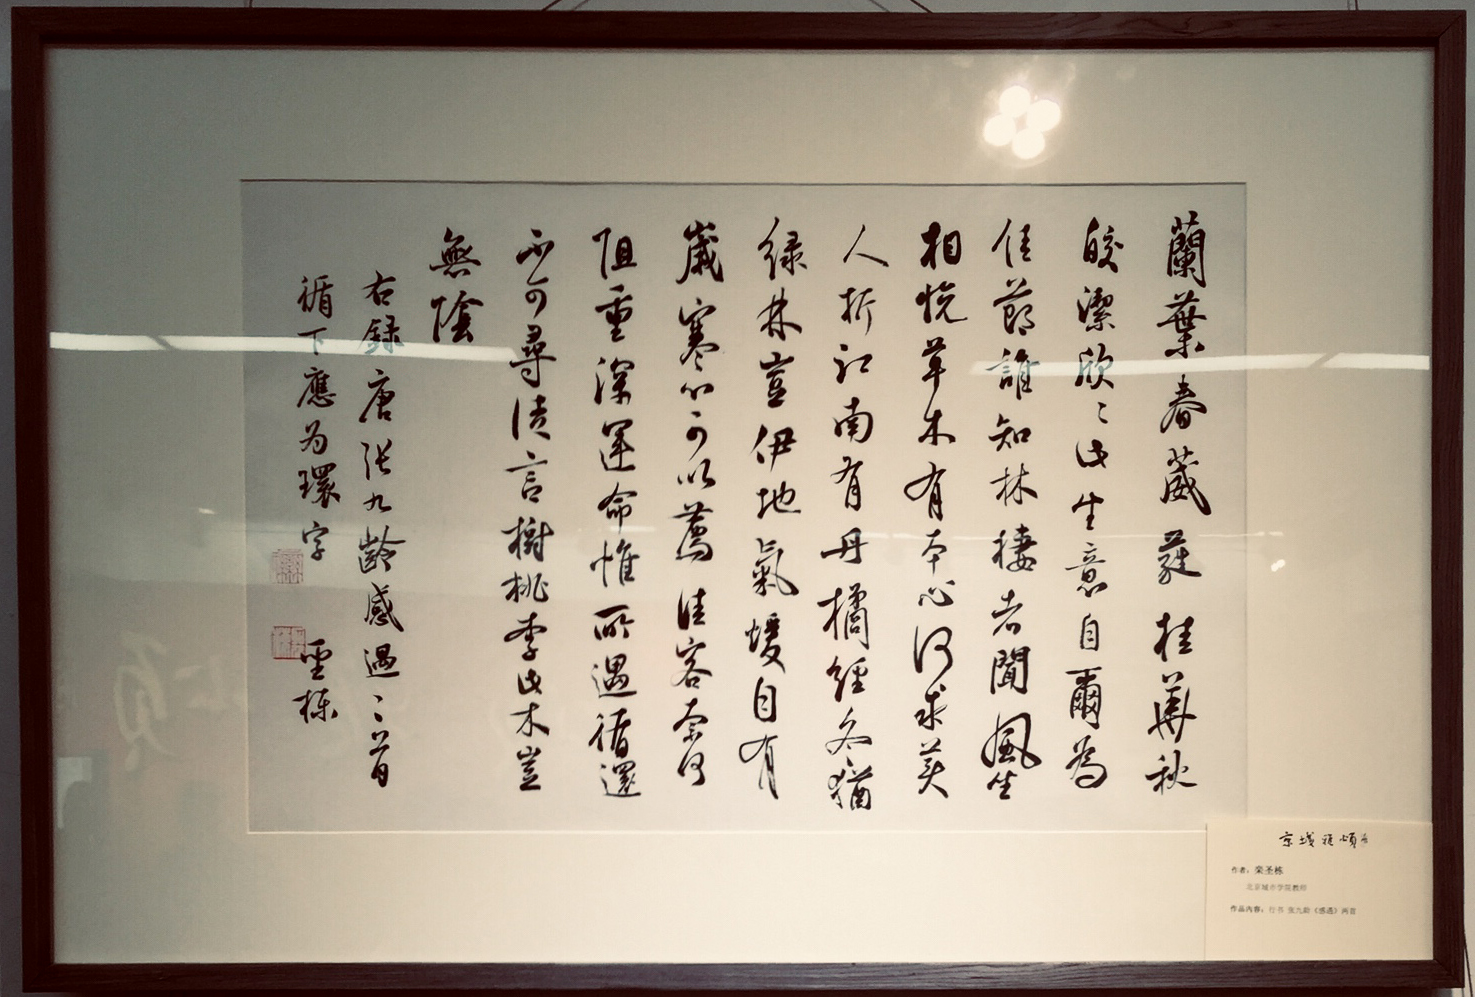 蘭葉春葳蕤桂華秋
皎潔欣〻此生意自爾為
佳節誰知林棲者聞風坐
相悅草木有本心何求美
人折江南有丹橘經冬猶
緑林豈伊地氣煖自有
歲寒心可以薦佳客奈何
阻重深運命惟所遇循還
不可尋徒言樹桃李此木豈
無陰
右録唐張九齡感遇二首
循下應为環字 聖栋
京城雅頌
作者：栾圣栋
北京城市学院教师
作品内容：行书 张九龄《感遇》两首